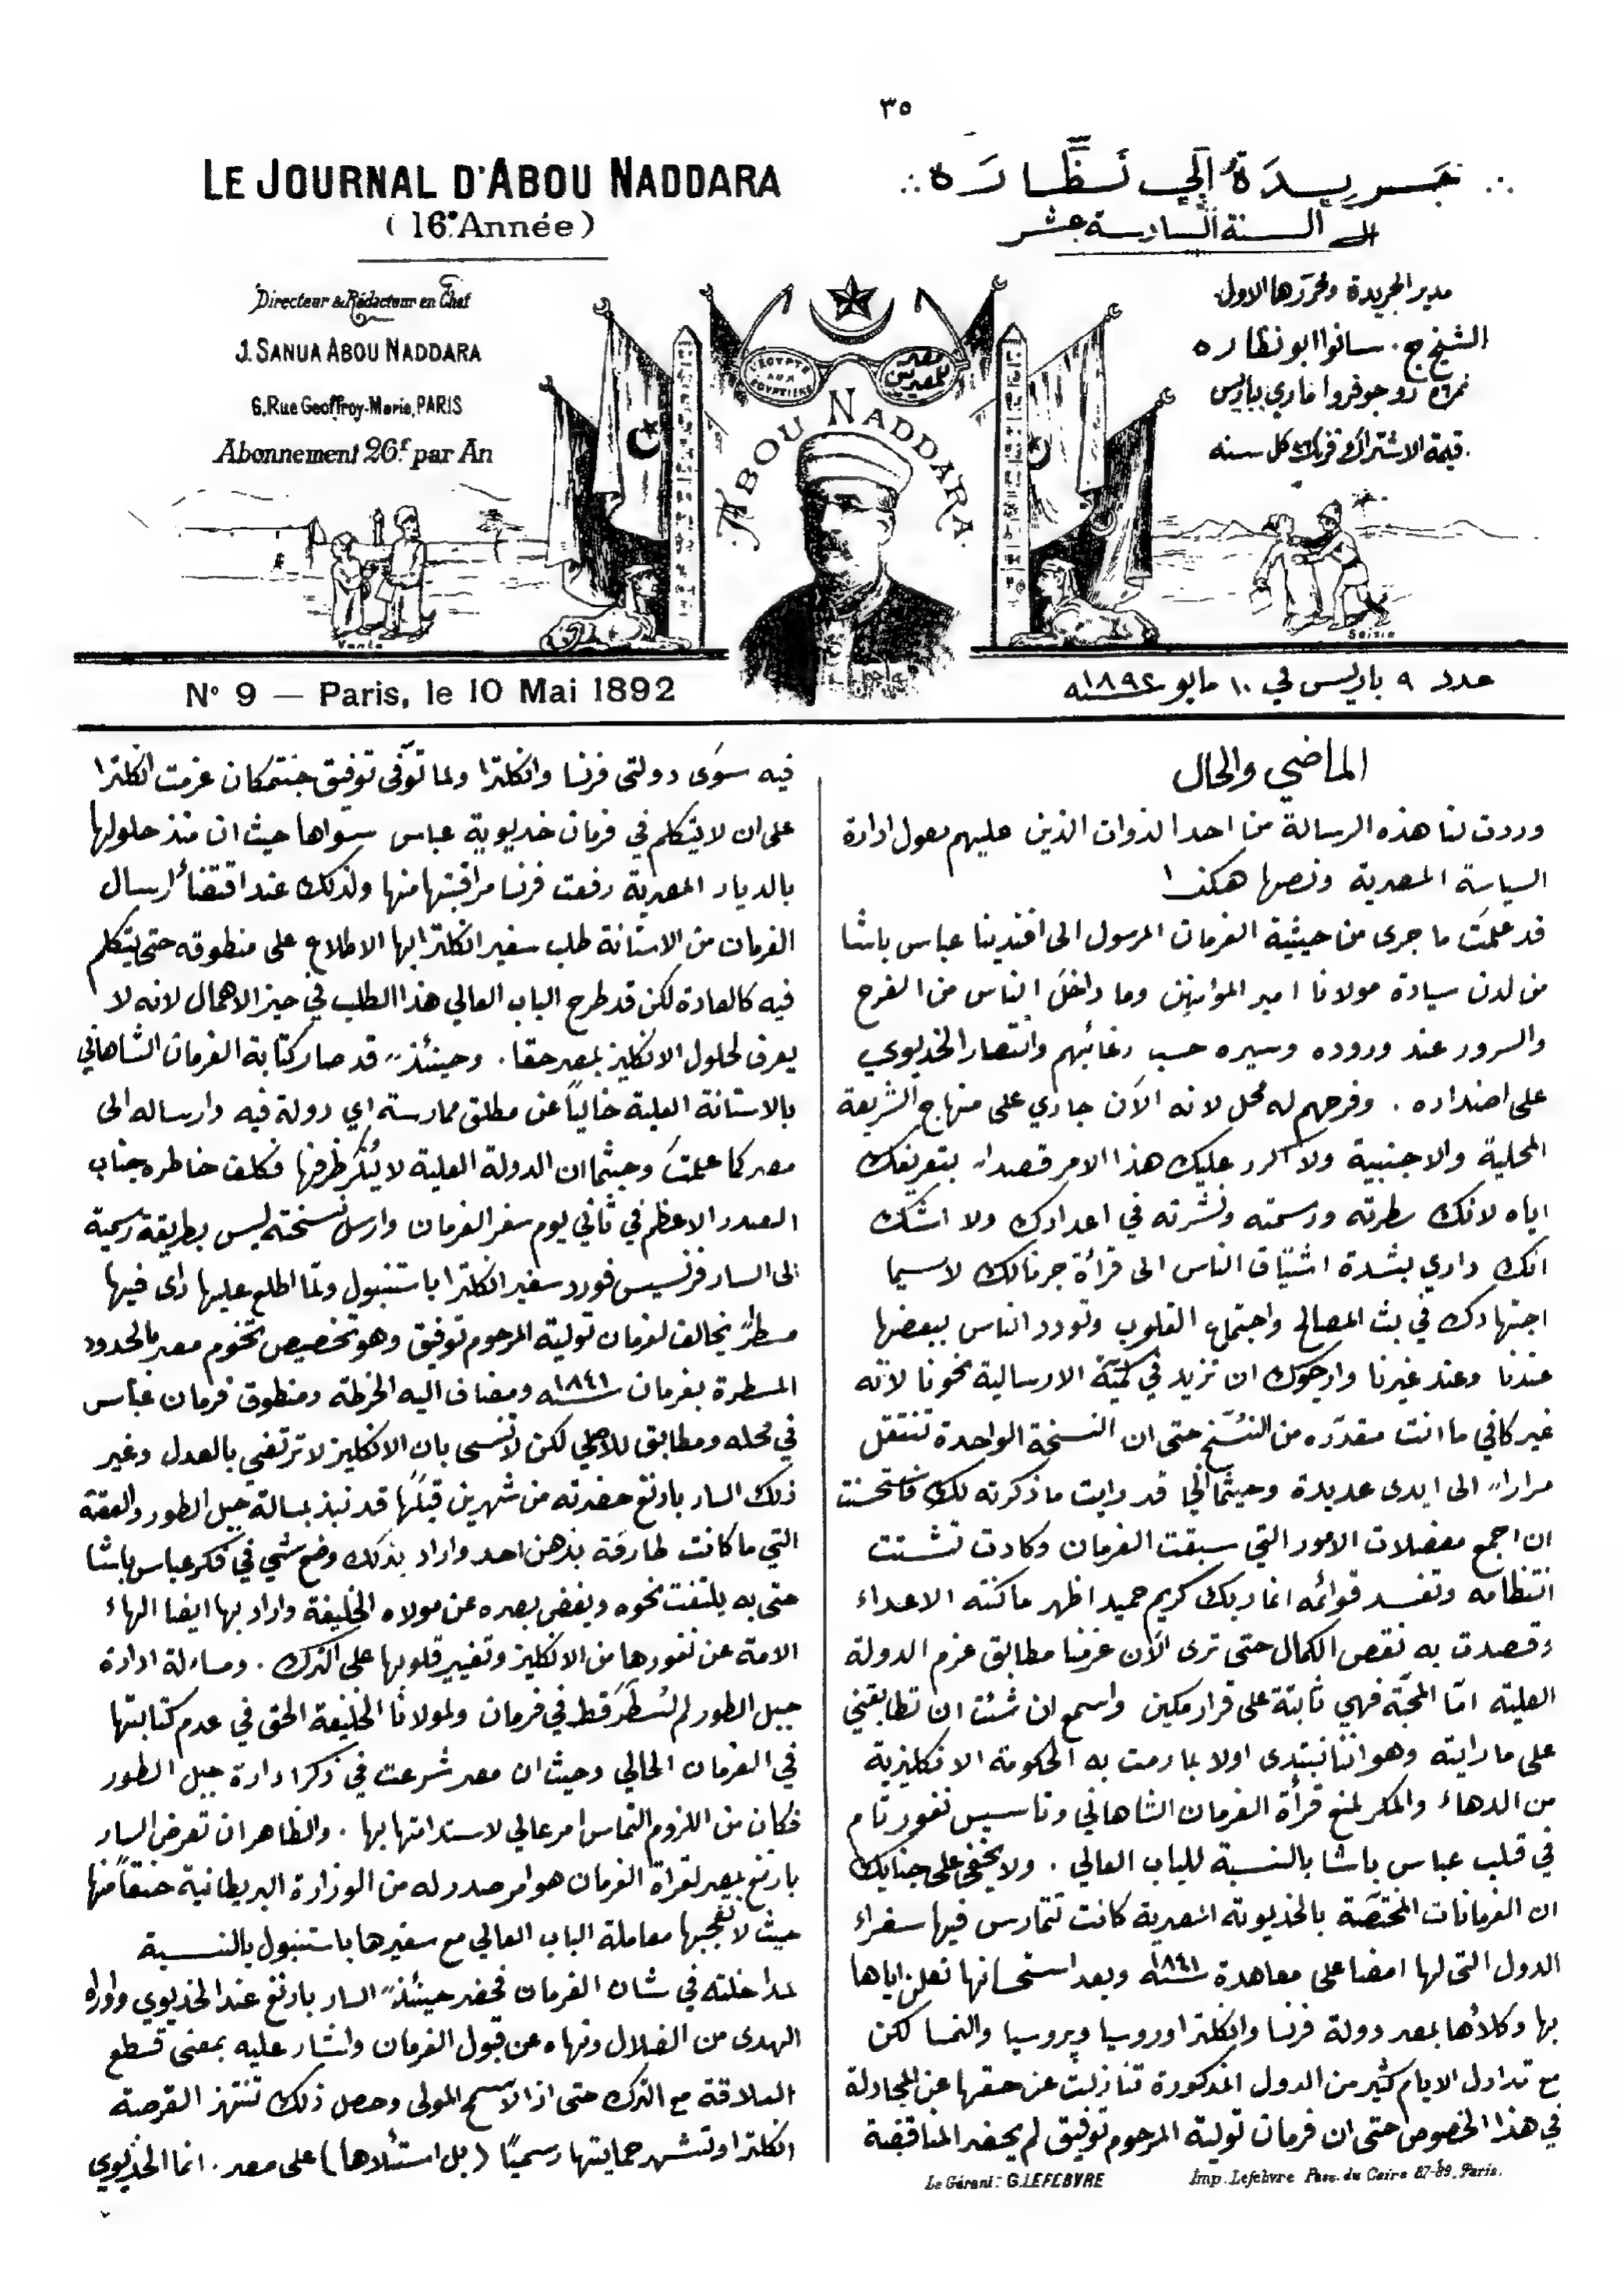 ٣٥
LE JOURNAL D'ABOU NADDARA
(16e Année)
Directeur & Rédacteur en Chef
J. SANUA ABOU NADDARA
6, Rue Geoffroy-Marie, PARIS
Abonnement 26f. par An
جريدة أبي نظّارة
السنة السادسة عشر
مدير الجريدة ومحررها الاول
الشيخ ج. سانوا ابو نظاره
نمرة ٦ رو جوفروا ماري بباريس
قيمة الاشتراك فرنك كل سنه
L'EGYPTE AUX EGYPTIENS
مصر للمصريين
ABOU NADDARA
Vente
Saisie
No 9 — Paris, le 10 Mai 1892
عدد ٩ باريس في ١٠ مايو سنة ١٨٩٢
الماضي والحال
وردت لنا هذه الرسالة من احد الذوات الذين عليهم معول ادارة
السياسة المصرية ونصها هكذا
قد علمتَ ما جرى من حيثية الفرمان المرسول الى افندينا عباس باشا
من لدن سيادة مولانا امير المؤمنين وما داخَلَ الناس من الفرح
والسرور عند وروده وسيره حسب رغائبهم وانتصار الخديوي
على اضداده . وفرحهم له محل لانه الآن جاري على منهاج الشريعة
المحلية والاجنبية ولا اكرر عليك هذا الامر قصداً بتعريفك
اياه لانك سطرته ورسمته ونشرته في اعدادك ولا اشك
انك داري بشدة اشتياق الناس الى قرأة جرنالك لاسيما
اجتهادك في بث المصالح واجتماع القلوب وتودد الناس ببعضها
عندنا وعند غيرنا وارجوك ان تزيد في كميّة الارسالية نحونا لانه
غير كافي ما انت مقدّره من النُسَخ حتى ان النسخة الواحدة تنتقل
مراراً الى ايدى عديدة وحيثما اني قد رايت ما ذكرته لك فاستحسنت
ان اجمع معضلات الامور التي سبقت الفرمان وكادت تشتت
انتظامه وتفسد قوائمه انما ربك كريم حميد اظهر ما كنته الاعداء
وقصدت به نقص الكمال حتى ترى الآن عزمنا مطابق عزم الدولة
العلية امّا المحبّة فهي ثابتة على قرار مكين واسمع ان شئت ان تطابقني
على ما رايته وهو اننا نبتدى اولا بما رمت به الحكومة الانكليزية
من الدهاء والمكر لمنع قرأة الفرمان الشاهاني وتاسيس نفور تام
في قلب عباس باشا بالنسبة للباب العالي . ولا يخفى على جنابك
ان الفرمانات المختصّة بالخديوية المصرية كانت تتمارس فيها سفراء
الدول التي لها امضا على معاهدة سنة ١٨٤١ وبعد استحسانها تعلن اياها
بها وكلأها بمصر دولة فرنسا وانكلترا وروسيا وبروسيا والنمسا لكن
مع تداول الايام كثير من الدول المذكورة تنازلت عن حقها عن المجادلة
في هذا الخصوص حتى ان فرمان تولية المرحوم توفيق لم يحضر المناقضة
فيه سوى دولتى فرنسا وانكلترا ولما توفى توفيق جنتمكان عزمت انكلترا
على ان لا يتكلم في فرمان خديوية عباس سواها حيث ان منذ حلولها
بالديار المصرية رفعت فرنسا مراقبتها منها ولذلك عند اقتضأ ارسال
الفرمان من الاستانة طلب سفير انكلترا بها الاطلاع على منطوقه حتى يتكلم
فيه كالعادة لكن قد طرح الباب العالي هذا الطلب في حيز الاهمال لانه لا
يعرف لحلول الانكليز بمصر حقا . وحينئذٍ قد صار كتابة الفرمان الشاهاني
بالاستانة العلية خالياً عن مطلق ممارسة اي دولة فيه وارساله الى
مصر كما علمتَ وحيثما ان الدولة العلية لا يُنكر ظرفها فكلف خاطره جناب
الصدر الاعظم في ثاني يوم سفر الفرمان وارسل نسخته ليس بطريقة رسمية
الى السار فرنسيس فورد سفير انكلترا باستنبول ولمّا اطلع عليها رأى فيها
سطراً يخالف لفرمان تولية المرحوم توفيق وهو تخصيص تخوم مصر بالحدود
المسطرة بفرمان سنة ١٨٤١ ومضاف اليه الخرطة ومنطوق فرمان عباس
في محله ومطابق للاصلي لكن لا تنسى بان الانكليز لا ترتضي بالعدل وغير
ذلك السار بارنغ حضرته من شهرين قبلها قد نبذ بمسالة جبل الطور والعقبة
التي ما كانت طارقة بذهن احد واراد بذلك وضع شي في فكر عباس باشا
حتى به يلتفت نحوه ويغض بصره عن مولاه الخليفة واراد بها ايضا الهاء
الامة عن نفورها من الانكليز وتغيير قلوبها على الترك . ومساءلة ادارة
جبل الطور لم تُسَطَّر قط في فرمان ولمولانا الخليفة الحق في عدم كتابتها
في الفرمان الحالي وحيث ان مصر شرعت في ذكر ادارة جبل الطور
فكان من اللزوم التماس امر عالي لاستدامتها بها . والظاهر ان تعرض السار
بارنغ بمصر لقرأة الفرمان هو امر صدر له من الوزارة البريطانية حنقاً منها
حيث لا تعجبها معاملة الباب العالي مع سفيرها باستنبول بالنسبة
لمداخلته في شان الفرمان فحضر حينئذٍ السار بارنغ عند الخديوي واوراه
الهدى من الضلال ونهاه عن قبول الفرمان واشار عليه بمعنى قطع
العلاقة مع الترك حتى اذا لا سمح المولى وحصل ذلك تنتهز الفرصة
انكلترا وتشهر حمايتها رسمياً (بل استئلاها) على مصر . انما الخديوي
Le Gérant: G. LEFEBVRE
Imp. Lefebvre Pass. du Caire 87-89, Paris.